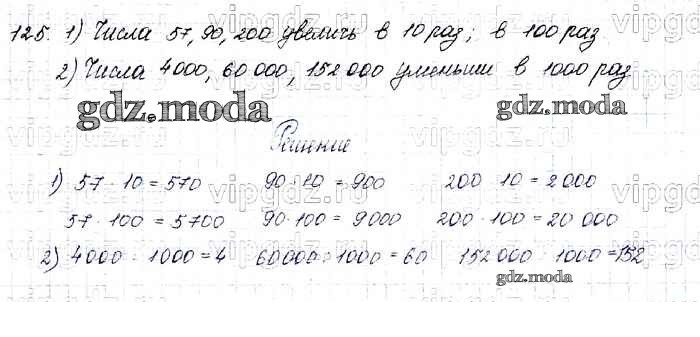 125. 1) Числа 57, 90, 200 увеличь в 10 раз; в 100 раз
2) Числа 4000, 60 000, 152 000 уменьши в 1000 раз
gdz.moda gdz.moda
Решение
1) 57 · 10 = 570 90 · 10 = 900 200 · 10 = 2000
57 · 100 = 5700 90 · 100 = 9000 200 · 100 = 20 000
2) 4000 : 1000 = 4 60000 : 1000 = 60 152 000 : 1000 = 152
gdz.moda